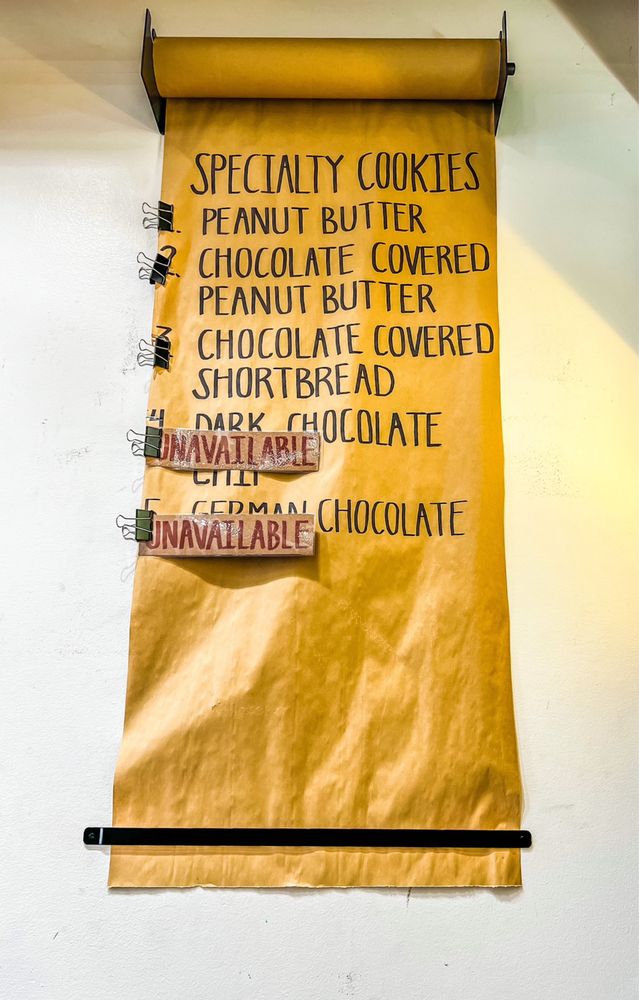 SPECIALTY COOKIES
PEANUT BUTTER
CHOCOLATE COVERED
PEANUT BUTTER
CHOCOLATE COVERED
SHORTBREAD
4 DARK CHOCOLATE
UNAVAILABLE
CHIP
GERMAN CHOCOLATE
UNAVAILABLE